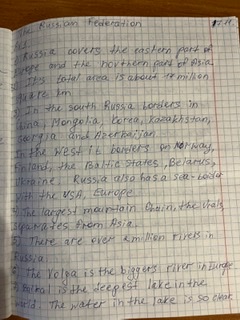 The Russian Federation 17.11.
Russia covers the eastern part of
and the northern part of Asia
It's total area is about 17 million
square km
In the south Russia borders in
China, Mongolia, Korea, Kazakhstan,
Georgia and Azerbaijan
In the West it borders on Norway,
Finland, the Baltic States, Belarus,
Ukraine. Russia also has a sea-border
with the USA, Europe
The largest mountain Chain, the Urals,
separates from Asia
5) There are over a million rivers in
Russia.
The Volga is the biggers river in Europe
Baikal is the deepest lake in the
world. The water in the lake is so clear